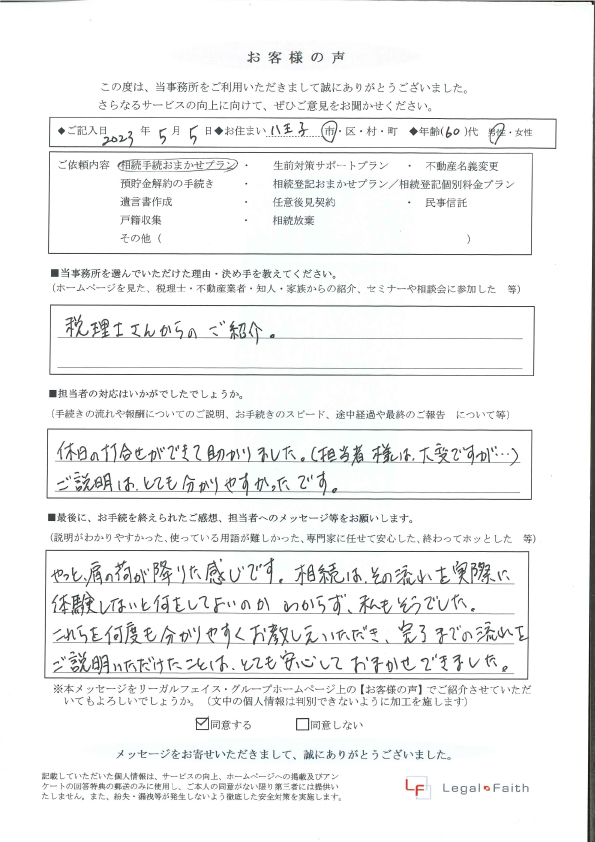 お客様の声
この度は、当事務所をご利用いただきまして誠にありがとうございました。
さらなるサービスの向上に向けて、ぜひご意見をお聞かせください。
◆ご記入日 2023 年 5 月 5 日 ◆お住まい 八王子 市・区・村・町 ◆年齢(60)代 男性・女性
ご依頼内容 相続手続おまかせプラン ・ 生前対策サポートプラン ・ 不動産名義変更
預貯金解約の手続き ・ 相続登記おまかせプラン／相続登記個別料金プラン
遺言書作成 ・ 任意後見契約 ・ 民事信託
戸籍収集 ・ 相続放棄
その他（ ）
■当事務所を選んでいただけた理由・決め手を教えてください。
（ホームページを見た、税理士・不動産業者・知人・家族からの紹介、セミナーや相談会に参加した 等）
税理士さんからの ご紹介。
■担当者の対応はいかがでしたでしょうか。
（手続きの流れや報酬についてのご説明、お手続きのスピード、途中経過や最終のご報告 について等）
休日の打合せができて助かりました。（担当者 様は、大変ですが…）
ご説明は、とても分かりやすかったです。
■最後に、お手続を終えられたご感想、担当者へのメッセージ等をお願いします。
（説明がわかりやすかった、使っている用語が難しかった、専門家に任せて安心した、終わってホッとした 等）
やっと、肩の荷が降りた感じです。相続は、その流れを実際に
体験しないと何をしてよいのか わからず、私もそうでした。
これらを何度も分かりやすくお教えいただき、完了までの流れを
ご説明いただけたことは、とても安心しておまかせできました。
※本メッセージをリーガルフェイス・グループホームページ上の【お客様の声】でご紹介させていただ
いてもよろしいでしょうか。（文中の個人情報は判別できないように加工を施します）
☑同意する □同意しない
メッセージをお寄せいただきまして、誠にありがとうございました。
記載していただいた個人情報は、サービスの向上、ホームページへの掲載及びアン
ケートの回答特典の郵送のみに使用し、ご本人の同意がない限り第三者には提供い
たしません。また、紛失・漏洩等が発生しないよう徹底した安全対策を実施します。
LF Legal Faith